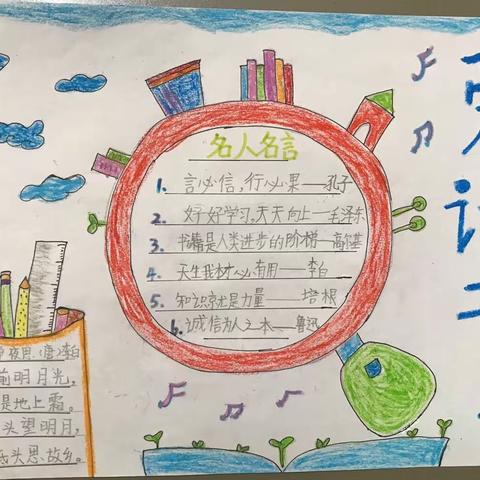 名人名言
1. 言必信，行必果——孔子
2. 好好学习，天天向上——毛泽东
3. 书籍是人类进步的阶梯——高尔基
4. 天生我材必有用——李白
5. 知识就是力量——培根
6. 诚信为人之本——鲁迅
夜思（唐）李白
前明月光，
是地上霜。
头望明月，
低头思故乡。